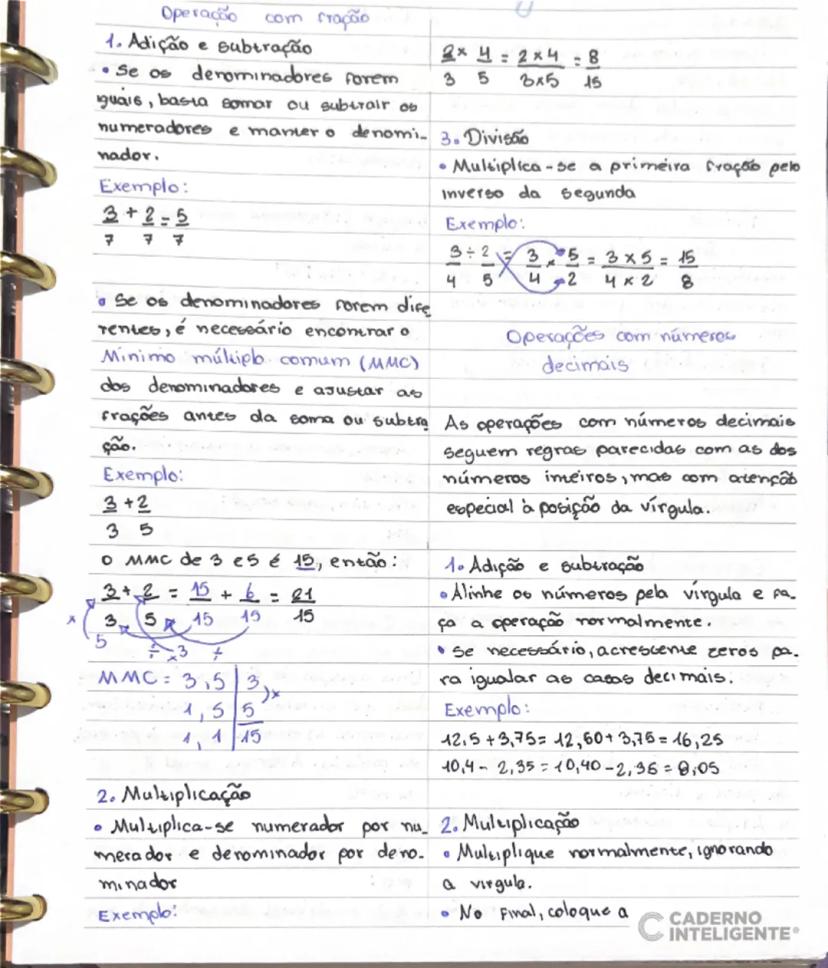 Operação com fração
1. Adição e subtração
• Se os denominadores forem
iguais, basta somar ou subtrair os
numeradores e manter o denomi-
nador.
Exemplo:
3 + 2 = 5
7 7 7
• Se os denominadores forem dife
rentes, é necessário encontrar o
Mínimo múltiplo comum (MMC)
dos denominadores e ajustar as
frações antes da soma ou subtra
ção.
Exemplo:
3 + 2
3 5
O MMC de 3 e 5 é 15, então:
3 + 2 = 15 + 6 = 21
x 3 5 15 15 15
5 ÷ x3 ÷
MMC = 3,5 | 3
1, 5 | 5 x
1, 1 | 15
2. Multiplicação
• Multiplica-se numerador por nu-
merador e denominador por deno-
minador
Exemplo:
2 x 4 = 2 x 4 = 8
3 5 3x5 15
3. Divisão
• Multiplica-se a primeira fração pelo
inverso da segunda
Exemplo:
3 ÷ 2 = 3 x 5 = 3 x 5 = 15
4 5 4 2 4 x 2 8
Operações com números
decimais
As operações com números decimais
seguem regras parecidas com as dos
números inteiros, mas com atenção
especial à posição da vírgula.
1. Adição e subtração
• Alinhe os números pela vírgula e fa-
ça a operação normalmente.
• Se necessário, acrescente zeros pa-
ra igualar as casas decimais.
Exemplo:
12,5 + 3,75 = 12,50 + 3,75 = 16,25
10,4 - 2,35 = 10,40 - 2,35 = 8,05
2. Multiplicação
• Multiplique normalmente, ignorando
a vírgula.
• No final, coloque a
CADERNO
INTELIGENTE®